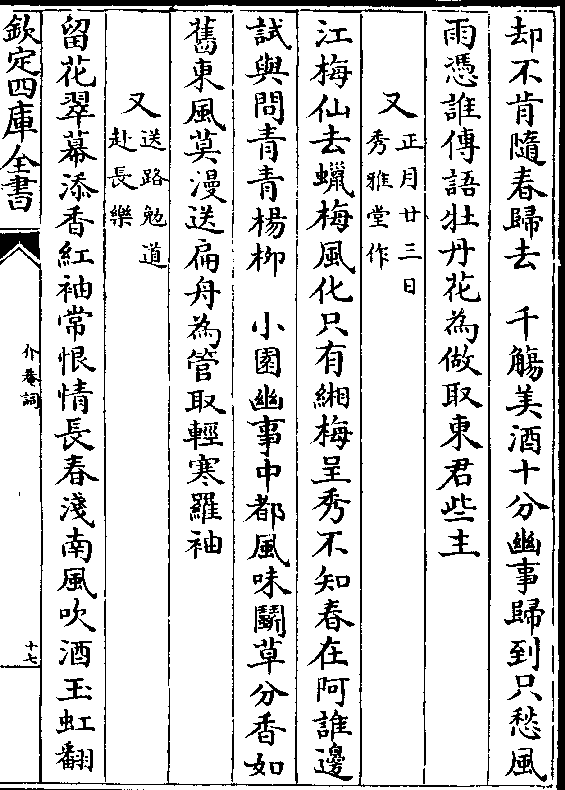 却不肯隨春歸去　千觴美酒十分幽事歸到只愁風
雨憑誰傳語牡丹花為做取東君些主
又正月廿三日
秀雅堂作
江梅仙去蠟梅風化只有緗梅呈秀不知春在阿誰邊
試與問青青楊柳　小園幽事中都風味鬬草分香如
舊東風莫漫送扁舟為管取輕寒羅袖
又送路勉道
赴長樂
留花翠幕添香紅袖常恨情長春淺南風吹酒玉虹翻
欽定四庫全書
介菴詞
十七